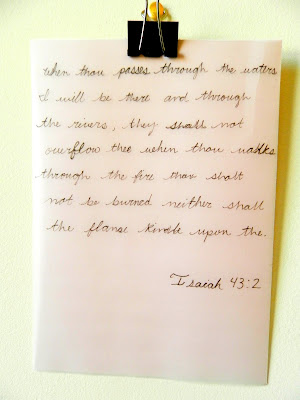 when thou passes through the waters
I will be there and through
the rivers, they shall not
overflow thee when thou walks
through the fire thou shalt
not be burned neither shall
the flame kindle upon the.
Isaiah 43:2